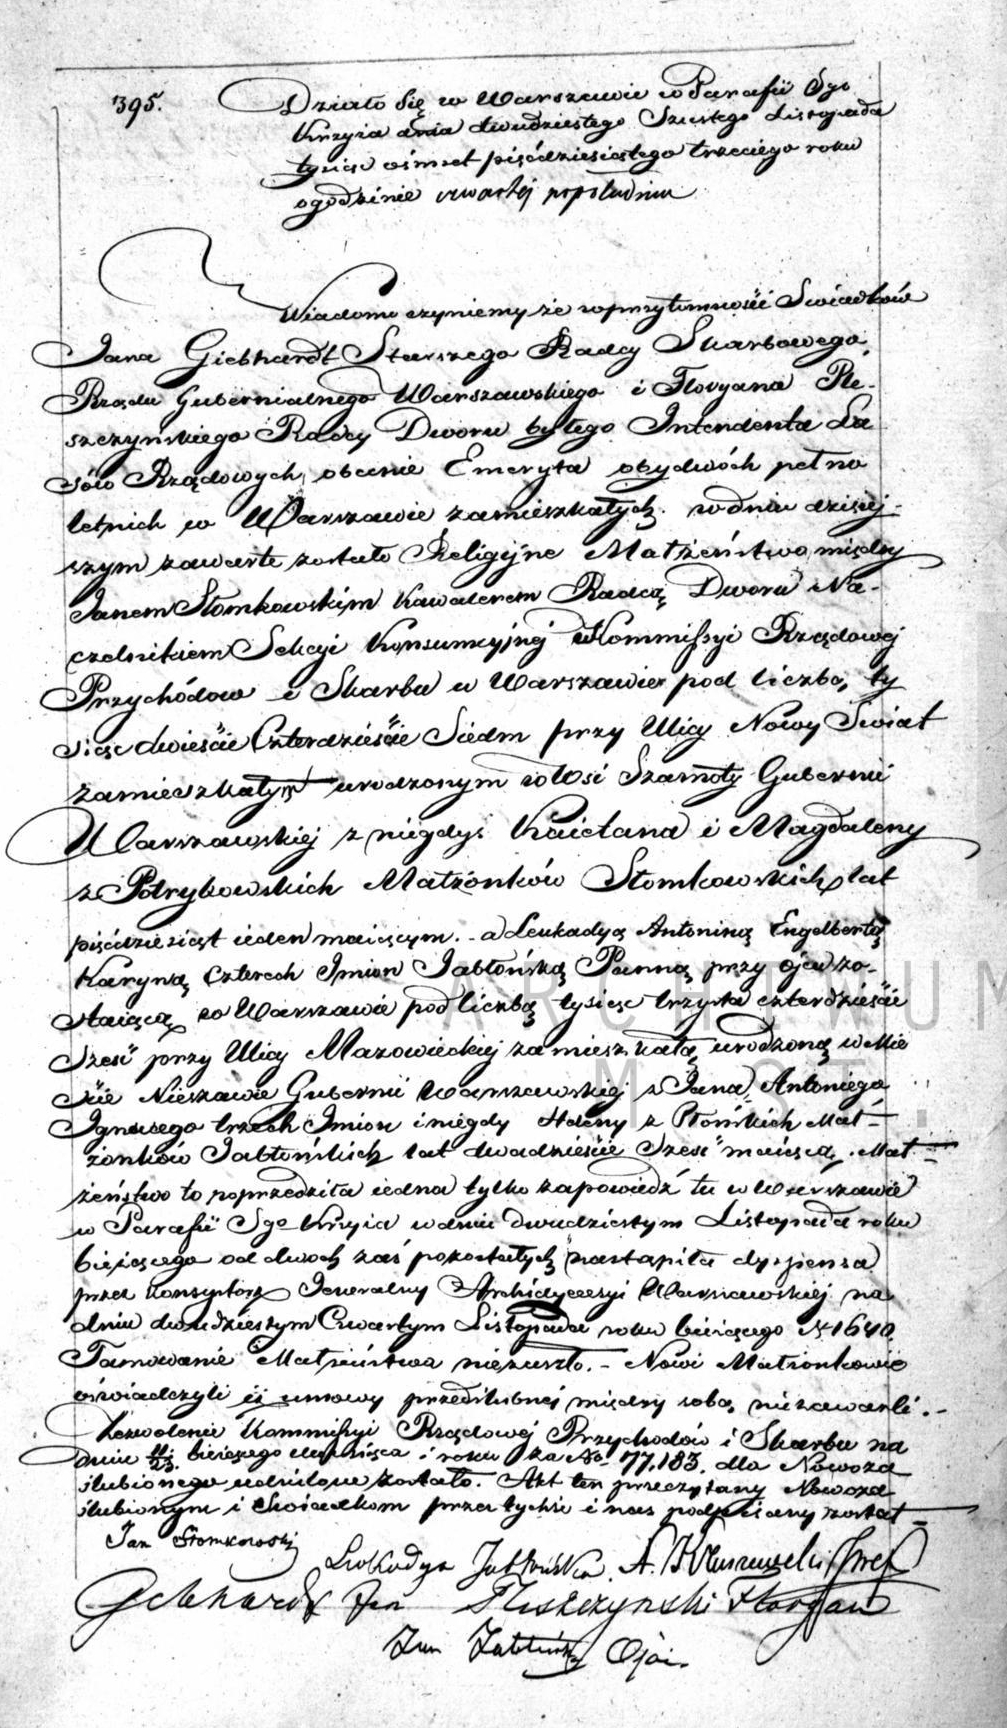 395.
Działo Się w Warszawie w Parafii Sgo
Krzyża dnia dwudziestego Szustego Listopada
tysiąc ośmset pięćdziesiątego trzeciego roku
ogodzinie czwartej popołudniu
Wiadomo czyniemy że wprzytomności Swiadków
Jana Giebhardt Starszego Radcy Skarbowego
Rządu Gubernialnego Warszawskiego i Floryana Ple-
szczyńskiego Radcy Dworu byłego Intendenta La
sów Rządowych, obecnie Emeryta obydwóch pełno
letnich w Warszawie zamieszkałych. w dniu dzisiej-
szym zawarte zostało Religijne Małżeństwo między
Janem Słomkowskim Kawalerem Radcą Dworu Na-
czelnikiem Sekcyi Konsumcyjnej w Kommissyi Rządowej
Przychódow i Skarbu w Warszawie pod liczbą ty
siąc dwieście Czterdzieście Siedm przy Ulicy Nowy Swiat
zamieszkałym urodzonym w Wsi Szamoty Gubernii
Warszawskiej z niegdyś Kaietana i Magdaleny
z Potrykowskich Małżonków Słomkowskich lat
pięćdziesiąt ieden maiącym. - a Leukadyą Antoniną Engelbertą
Karyną czterech Imion Jabłońską Panną przy ojcu zo-
staiącą w Warszawie pod liczbą tysiąc trzysta czterdzieście
Sześć przy Ulicy Mazowieckiej zamieszkałą, urodzoną w Mie
ście Nieszawie Gubernii Warszawskiej z Jana Antoniego
Ignacego trzech Imion i niegdy Heleny z Płońskich Mał-
żonków Jabłońskich lat dwadzieście Sześć maiącą. Mał-
żeństwo to poprzedziła iedna tylko zapowiedź tu w Warszawie
w Parafii Sgo Krzyża w dniu dwudziestym Listopada roku
bieżącego od dwoch zaś pozostałych nastąpiła dyspensa
przez Konsystorz Jeneralny Archidyecezyi Warszawskiej na
dniu dwudziestym Czwartym Listopada roku bieżącego N 1640.
Tamowanie Małżeństwa niezaszło. - Nowi Małżonkowie
oświadczyli iż umowy przedślubnej między sobą niezawarli. -
Zezwolenie Kommissyi Rządowej Przychodów i Skarbu na
dniu 11/23 bieżącego miesiąca i roku za No 77,183. dla Nowoza
ślubionego udzielone zostało. Akt ten przeczytany Nowoza
ślubionym i Swiadkom przez tychże i nas podpisany został -
Jan Słomkowski
Leokadya Jabłońska.
Gebhardt Jan Pleszczynski Floryan
Jan Jabłoński Ojciec
ARCHIWUM
M. ST.